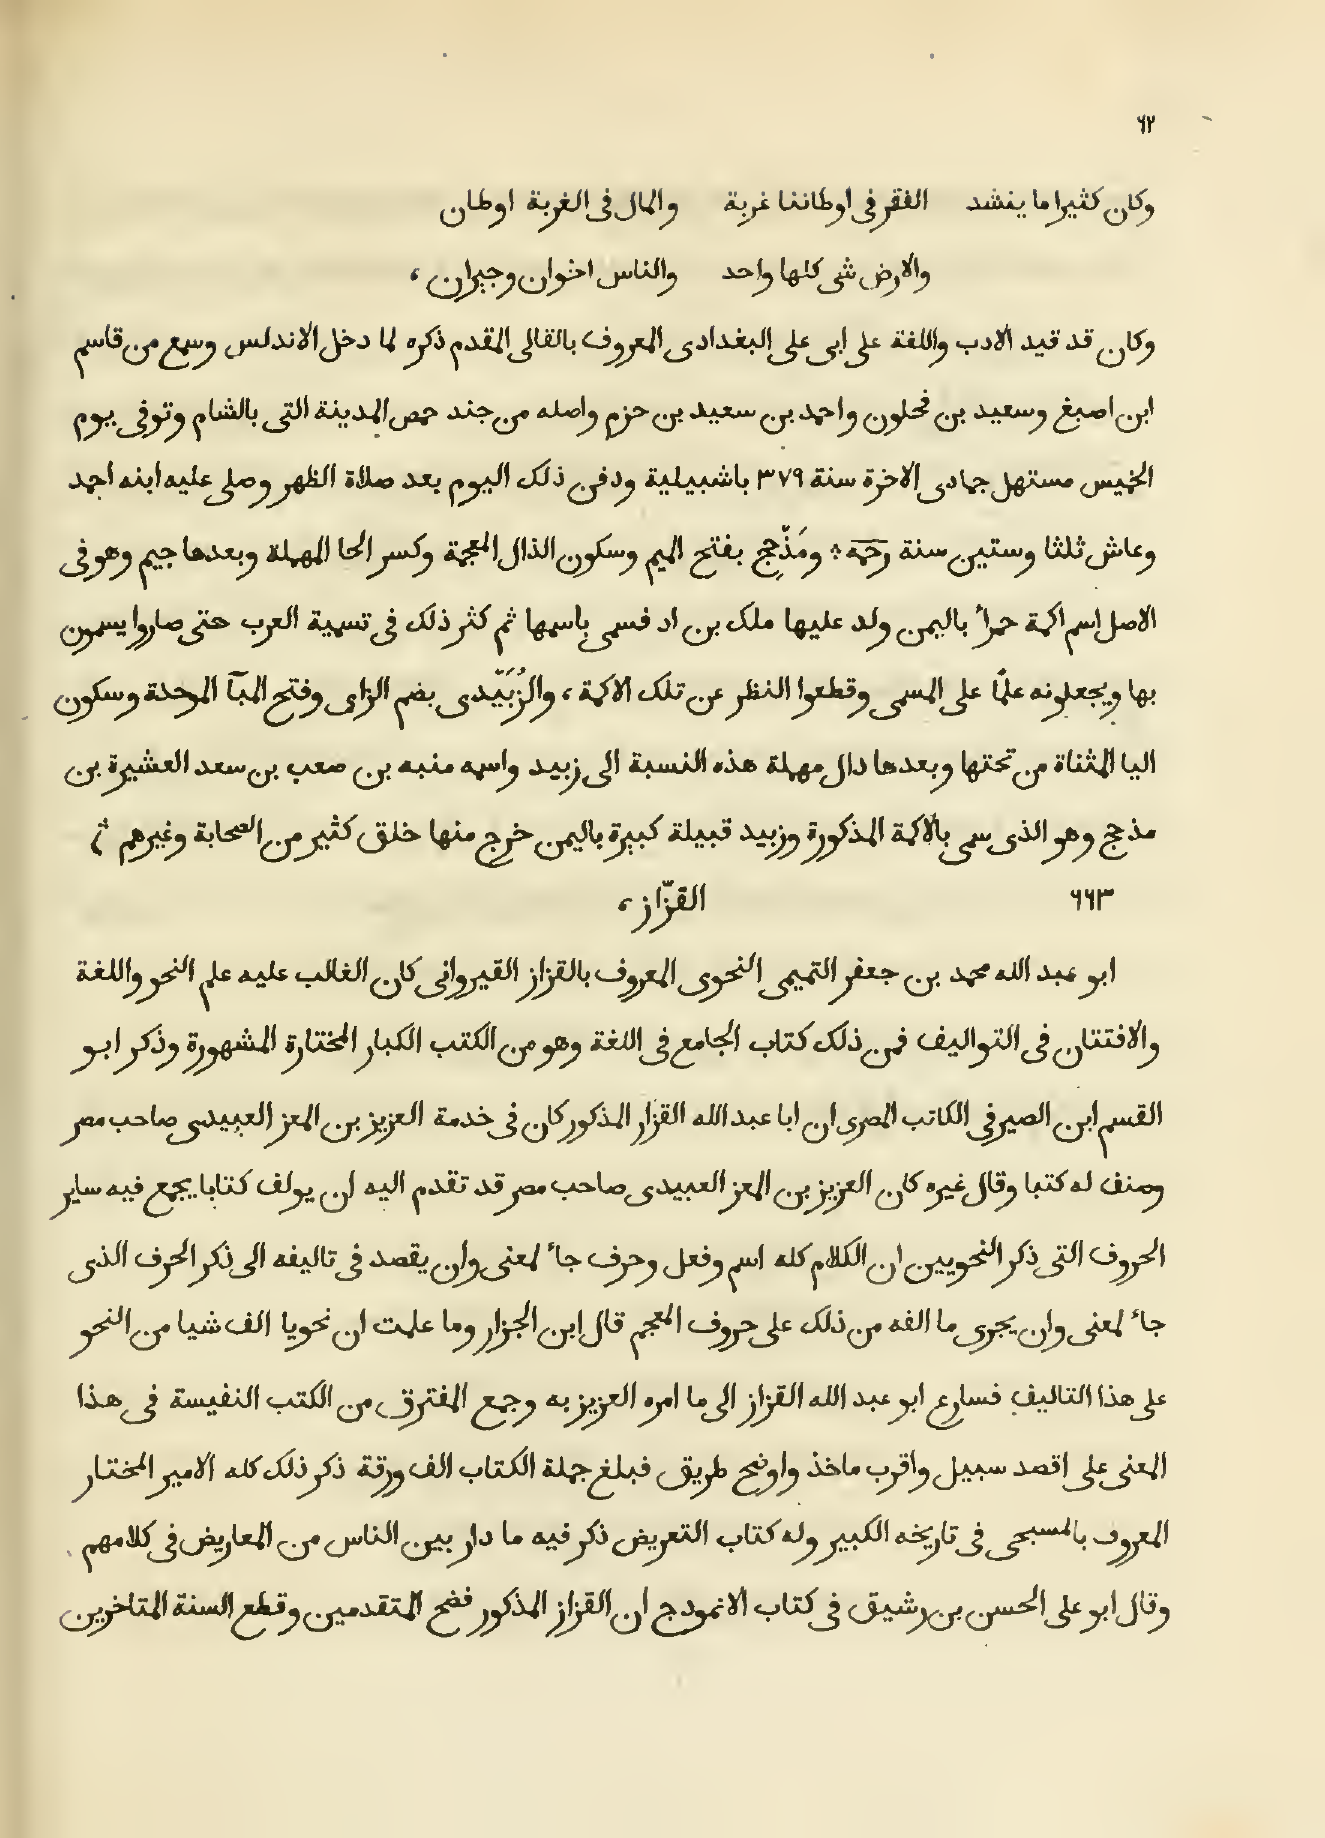 ٦٢
وكان كثيرا ما ينشد الفقر فى اوطاننا غربة والمال فى الغربة اوطان
والارض شى كلها واحد والناس اخوان وجيران ،
وكان قد قيد الادب واللغة على ابى على البغدادى المعروف بالقالى المقدم ذكره لما دخل الاندلس وسمع من قاسم
ابن اصبغ وسعيد بن فحلون واحمد بن سعيد بن حزم واصله من جند حمص المدينة التى بالشام وتوفى يوم
الخميس مستهل جمادى الاخرة سنة ٣٧٩ باشبيلية ودفن ذلك اليوم بعد صلاة الظهر وصلى عليه ابنه احمد
وعاش ثلثا وستين سنة رحمه ؞ ومَذْحِج بفتح الميم وسكون الذال المعجمة وكسر الحا المهملة وبعدها جيم وهو فى
الاصل اسم اكمة حمرآ باليمن ولد عليها ملك بن اد فسمى باسمها ثم كثر ذلك فى تسمية العرب حتى صاروا يسمون
بها ويجعلونه علمًا على المسمى وقطعوا النظر عن تلك الاكمة ، والزُبَيْدى بضم الزاى وفتح البآ الموحدة وسكون
اليا المثناة من تحتها وبعدها دال مهملة هذه النسبة الى زبيد واسمه منبه بن صعب بن سعد العشيرة بن
مذحج وهو الذى سمى بالاكمة المذكورة وزبيد قبيلة كبيرة باليمن خرج منها خلق كثير من الصحابة وغيرهم ؞
٦٦٣ القزّاز ،
ابو عبد الله محمد بن جعفر التميمى النحوى المعروف بالقزاز القيروانى كان الغالب عليه علم النحو واللغة
والافتنان فى التواليف فمن ذلك كتاب الجامع فى اللغة وهو من الكتب الكبار المختارة المشهورة وذكر ابو
القسم ابن الصيرفى الكاتب المصرى ان ابا عبد الله القزاز المذكور كان فى خدمة العزيز بن المعز العبيدى صاحب مصر
وصنف له كتبا وقال غيره كان العزيز بن المعز العبيدى صاحب مصر قد تقدم اليه ان يولف كتابا يجمع فيه ساير
الحروف التى ذكر النحويين ان الكلام كله اسم وفعل وحرف جآ لمعنى وان يقصد فى تاليفه الى ذكر الحرف الذى
جآ لمعنى وان يجرى ما الفه من ذلك على حروف المعجم قال ابن الجزار وما علمت ان نحويا الف شيا من النحو
على هذا التاليف فسارع ابو عبد الله القزاز الى ما امره العزيز به وجمع المفترق من الكتب النفيسة فى هذا
المعنى على اقصد سبيل واقرب ماخذ واوضح طريق فبلغ جملة الكتاب الف ورقة ذكر ذلك كله الامير المختار
المعروف بالمسبحى فى تاريخه الكبير وله كتاب التعريض ذكر فيه ما دار بين الناس من المعاريض فى كلامهم
وقال ابو على الحسن بن رشيق فى كتاب الانموذج ان القزاز المذكور فضح المتقدمين وقطع السنة المتاخرين